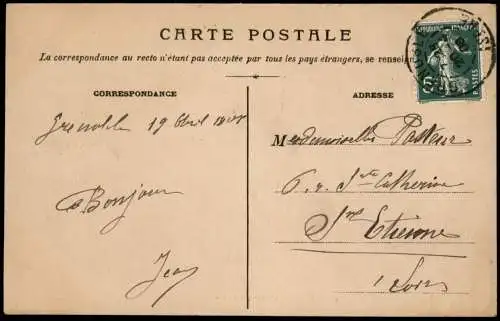 CARTE POSTALE
La correspondance au recto n'étant pas acceptée par tous les pays étrangers, se renseign
CORRESPONDANCE
ADRESSE
Grenoble 19 Avril
Bonjour
Jean
Mesdemoiselles Pasteur
6. r. Ste Catherine
St Etienne
Loire
REPUBLIQUE FRANÇAISE
5
POSTES